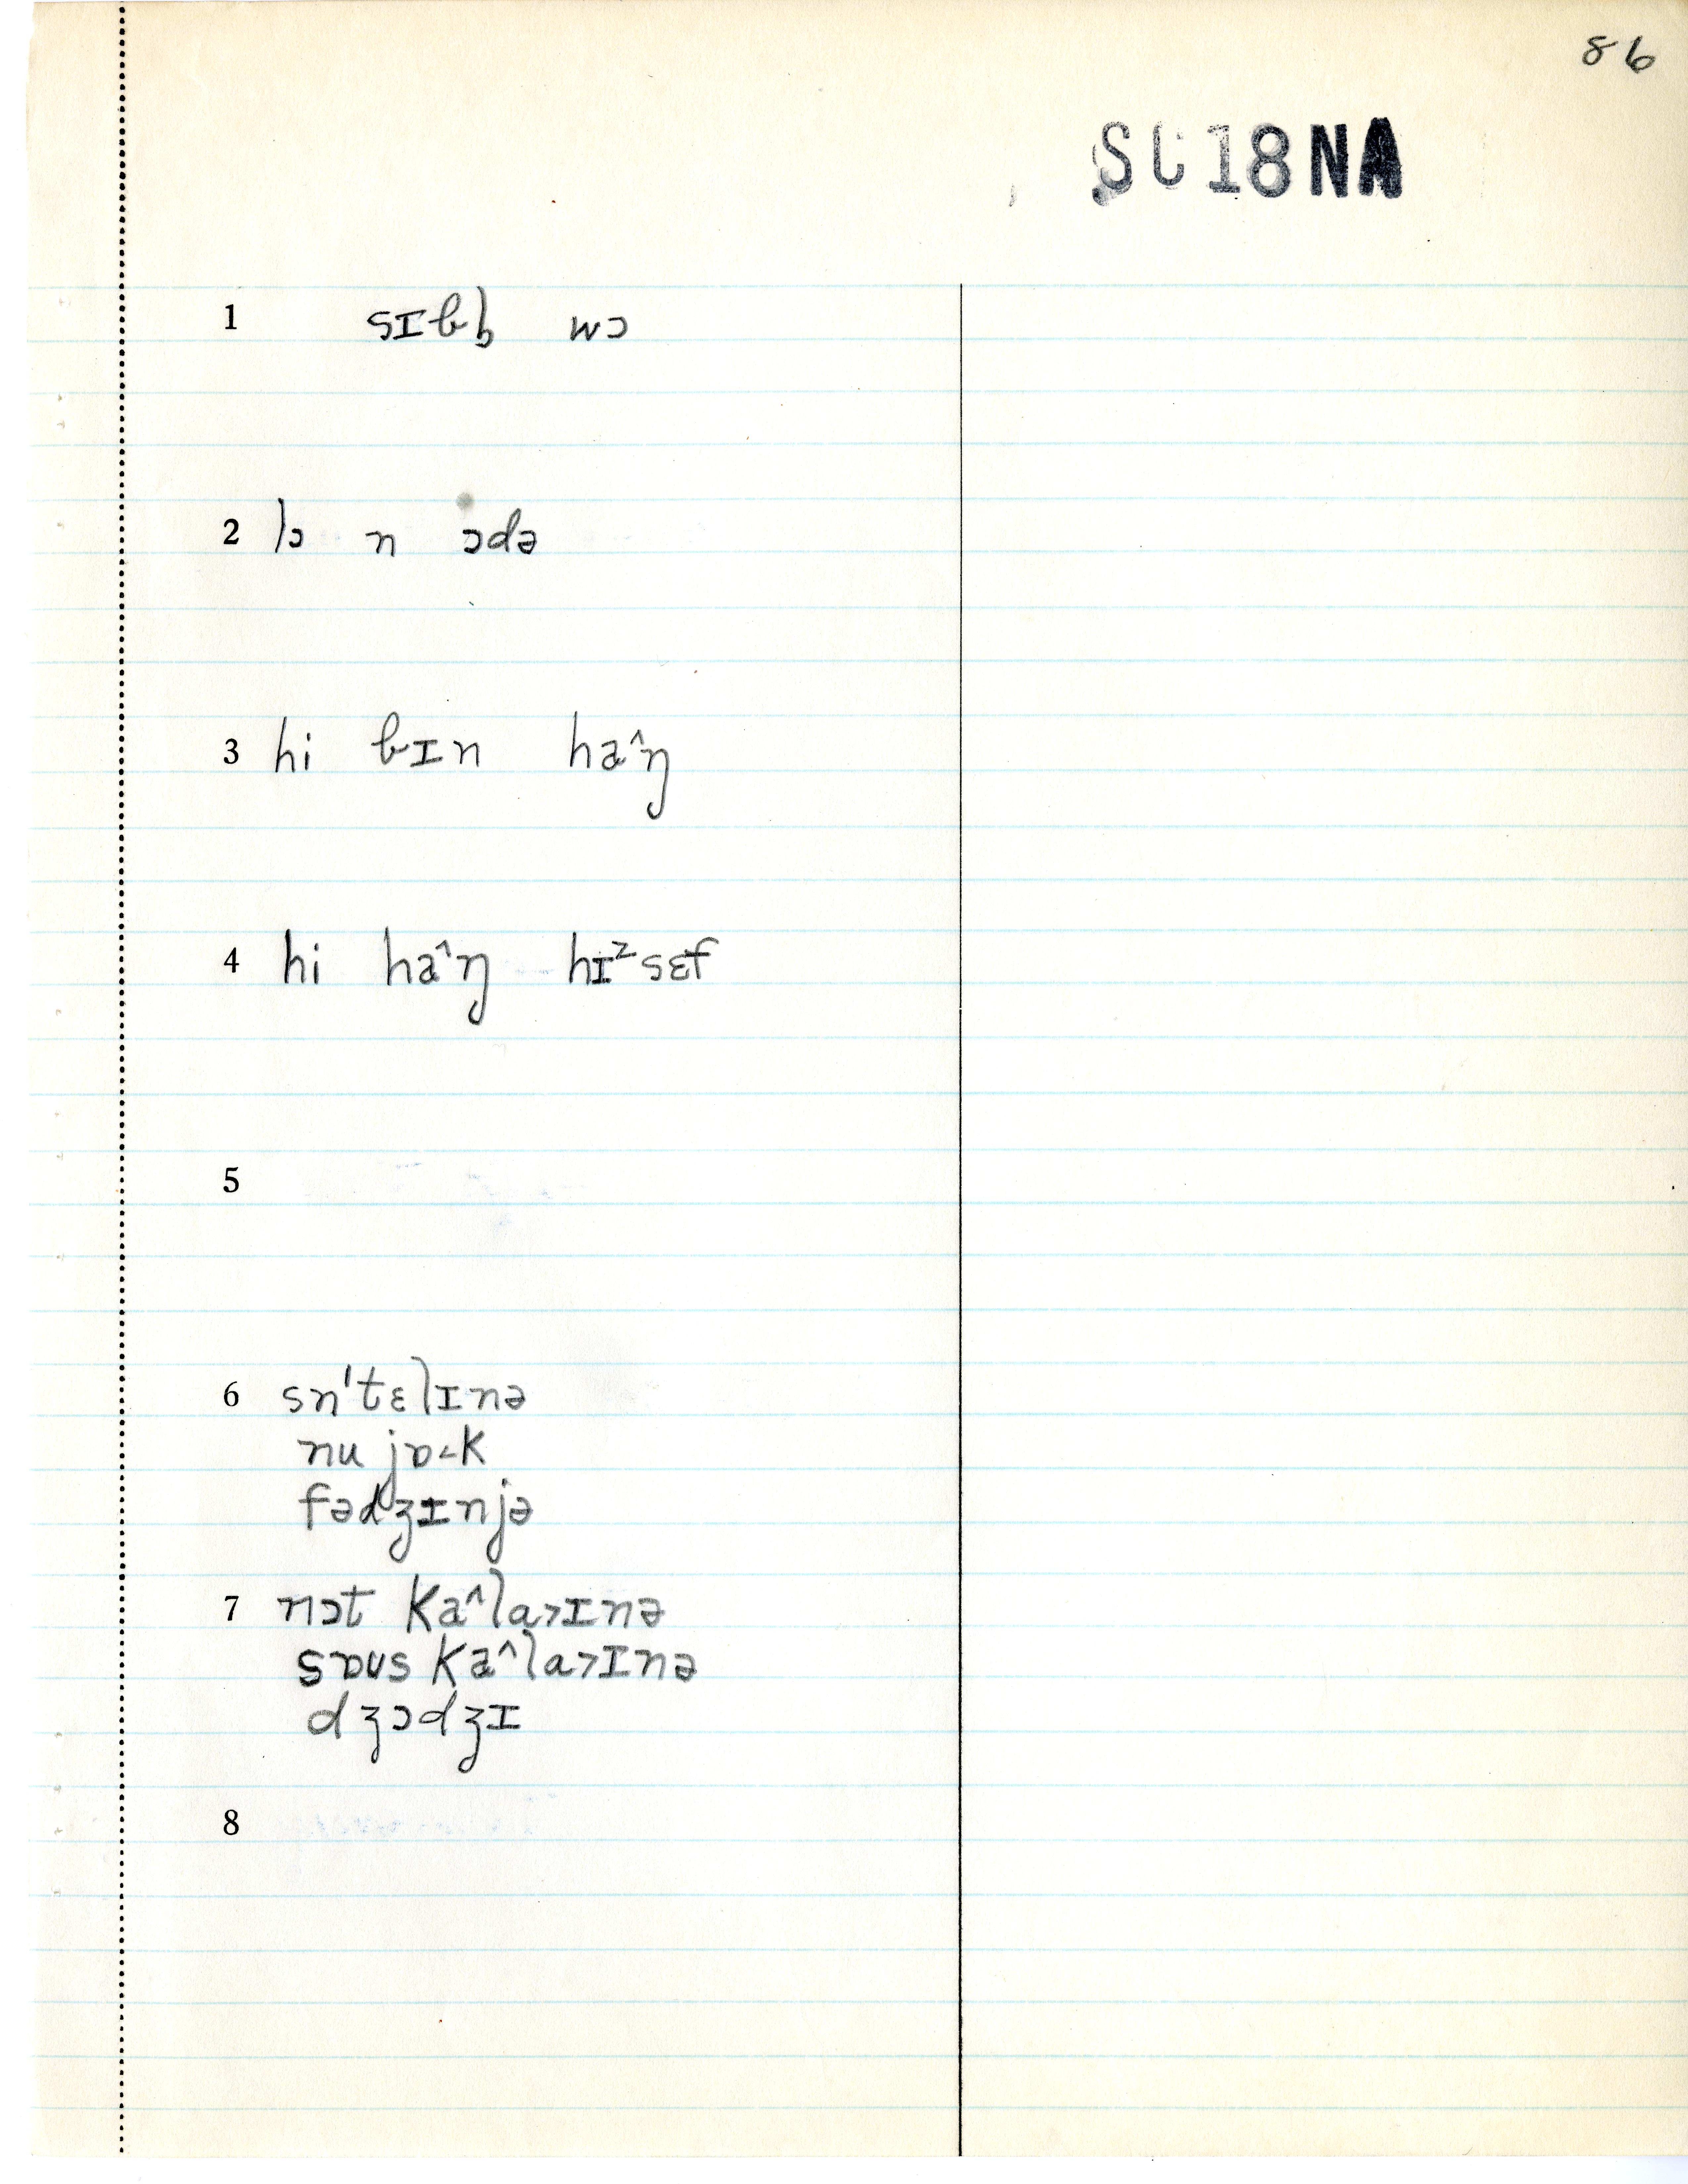 86
SC18NA
1 sɪbl̩ wɔ
2 lɔ n ɔdə
3 hi bɪn ha^ŋ
4 hi ha^ŋ hɪᶻsɛf
5
6 sn'tɛlɪnə
nu jɒ˂k
fədʒɪnjə
7 nɔt ka^la˃ɪnə
sɒʊs ka^la˃ɪnə
dʒɔdʒɪ
8